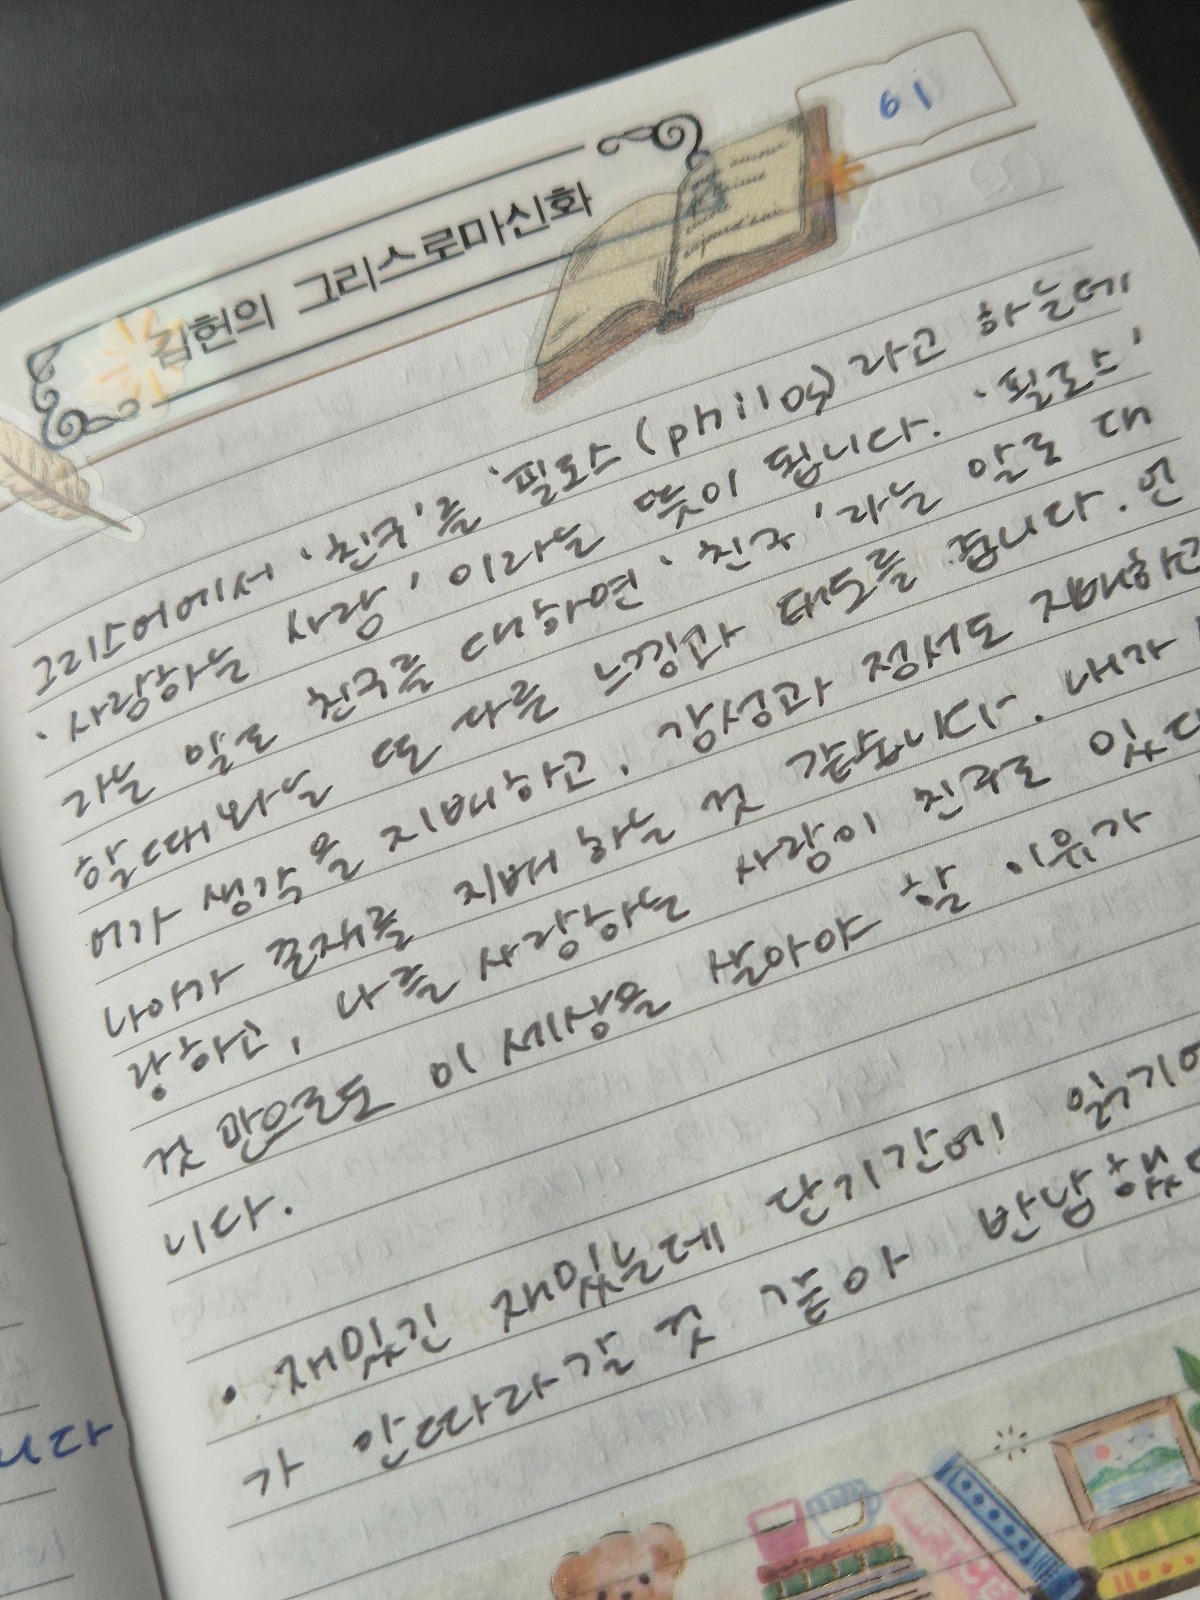 61
김헌의 그리스로마신화
그리스어에서 '친구'를 '필로스(philos)라고 하는데
'사랑하는 사람' 이라는 뜻이 됩니다. '필로스'
라는 말로 친구를 대하면 '친구'라는 말로 대
할때와는 또 다른 느낌과 태도를 줍니다. 언
어가 생각을 지배하고, 감성과 정서도 지배하고
나아가 존재를 지배하는 것 같습니다. 내가
랑하고, 나를 사랑하는 사람이 친구로 있다
것 만으로도 이 세상을 살아야 할 이유가
니다.
• 재밌긴 재밌는데 단기간에 읽기에
가 안따라갈 것 같아 반납했
니다